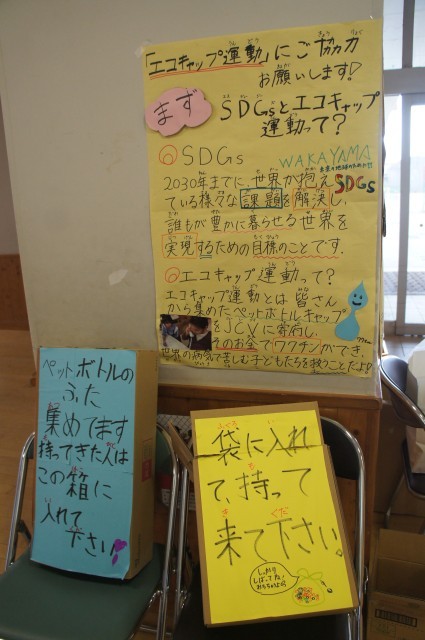 「エコキャップ運動」にご協力
お願いします!
まず
SDGsとエコキャップ
運動って?
SDGs
WAKAYAMA
SDGs
2030年までに、世界が抱え
ている様々な課題を解決し、
誰もが豊かに暮らせる世界を
実現するための目標のことです.
エコキャップ運動って?
エコキャップ運動とは皆さん
から集めたペットボトルキャップ
をJCVに寄付し、
そのお金でワクチンができ、
世界の病気で苦しむ子どもたちを救うことだよ!!
ペットボトルの
ふた
集めてます
持ってきた人は
この箱に
入れて
下さい!
袋に入れ
て、持って
来て下さい。
しっかり
しばってね!